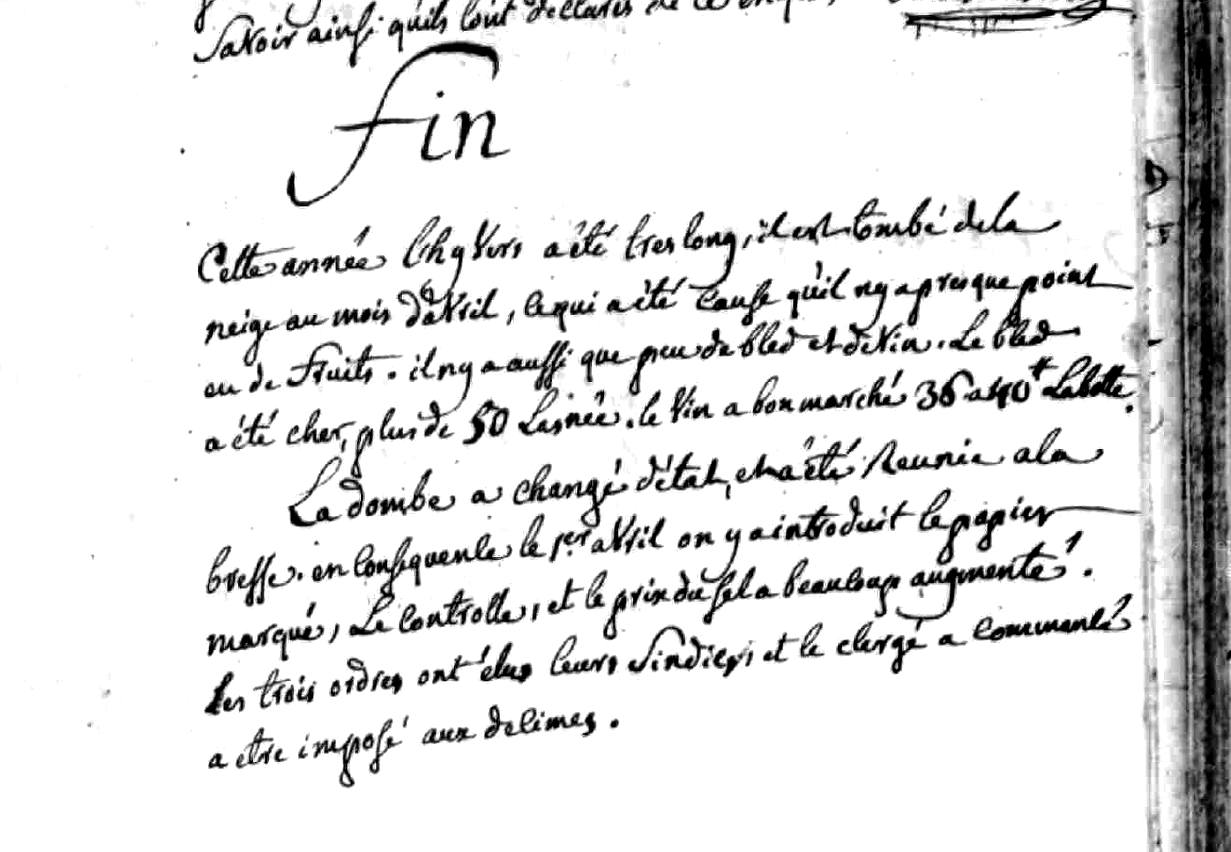 Savoir ainsi quils sont declarés de ce enquis
fin
Cette année lhyvers a été tres long, il est tombé de la
neige au mois d'avril, ce qui a été cause qu'il ny a presque point
eu de fruits. il ny a aussi que peu de bled et de vin. Le bled
a été cher, plus de 50 Lasnée. le vin a bon marché 36 a 40ᵗᵗ Labotte.
La dombe a changé détat, et a été Reunie a la
bresse. en consequence le 1er avril on y a introduit le papier
marqué, Le controlle, et le prix du sel a beaucoup augmenté.
Les trois ordres ont élus leurs Sindics, et le clergé a commencé
a etre imposé aux decimes.